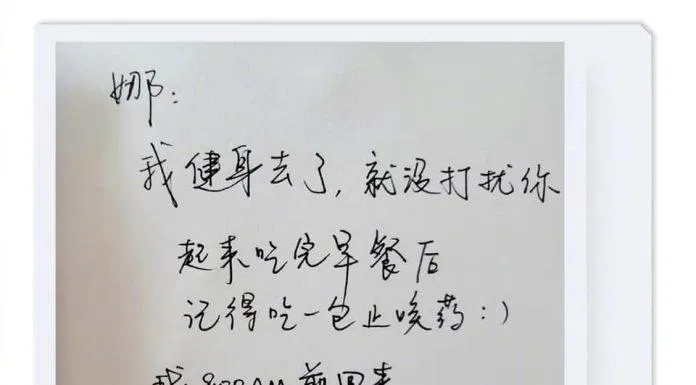 娜：
我健身去了，就没打扰你
起来吃完早餐后
记得吃一包止咳药：）
我 8:00AM 前回来